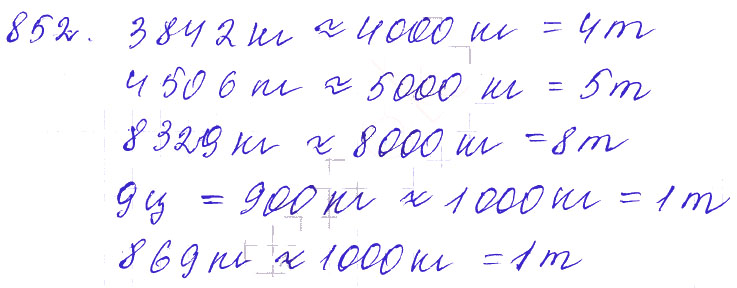 852. 3842 кг ≈ 4000 кг = 4 т
4506 кг ≈ 5000 кг = 5 т
8329 кг ≈ 8000 кг = 8 т
9 ц = 900 кг ≈ 1000 кг = 1 т
869 кг ≈ 1000 кг = 1 т